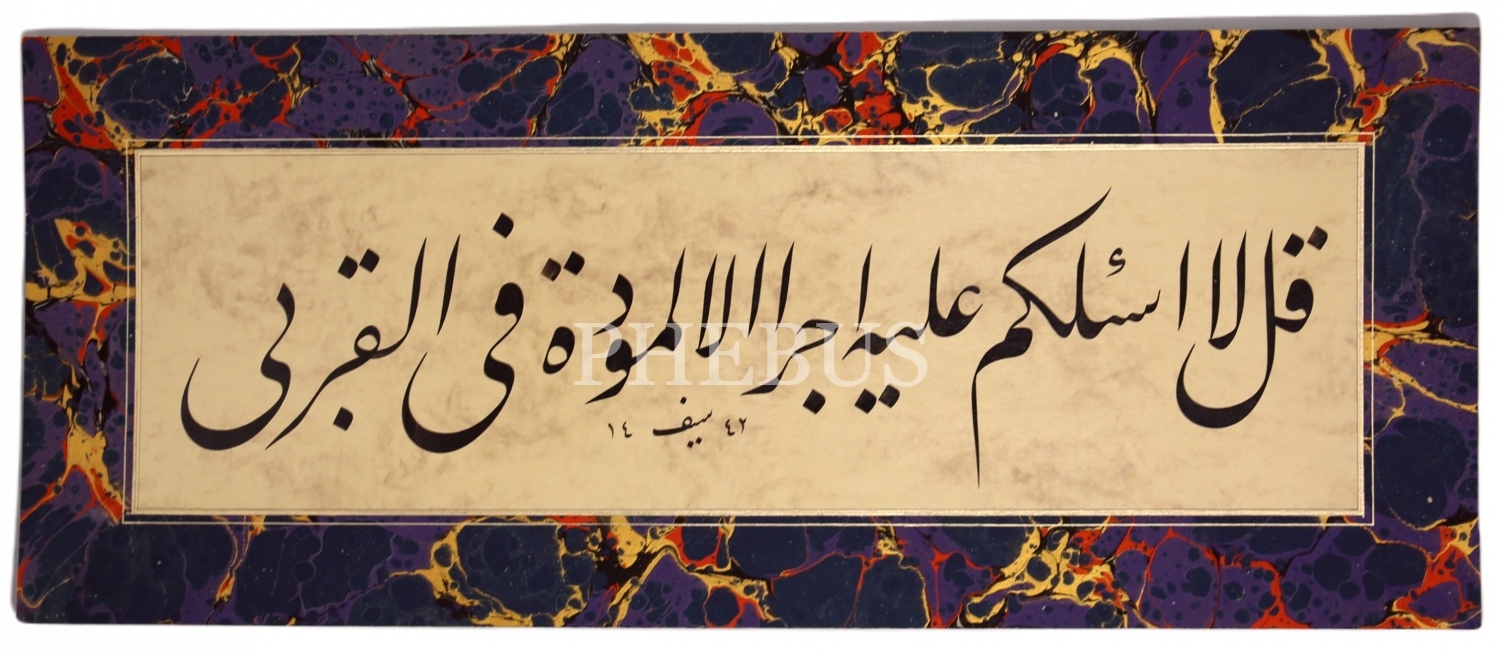 قل لا اسئلكم عليه اجرا الا المودة فى القربى
١٤ سيف ٤٢
PHEBUS